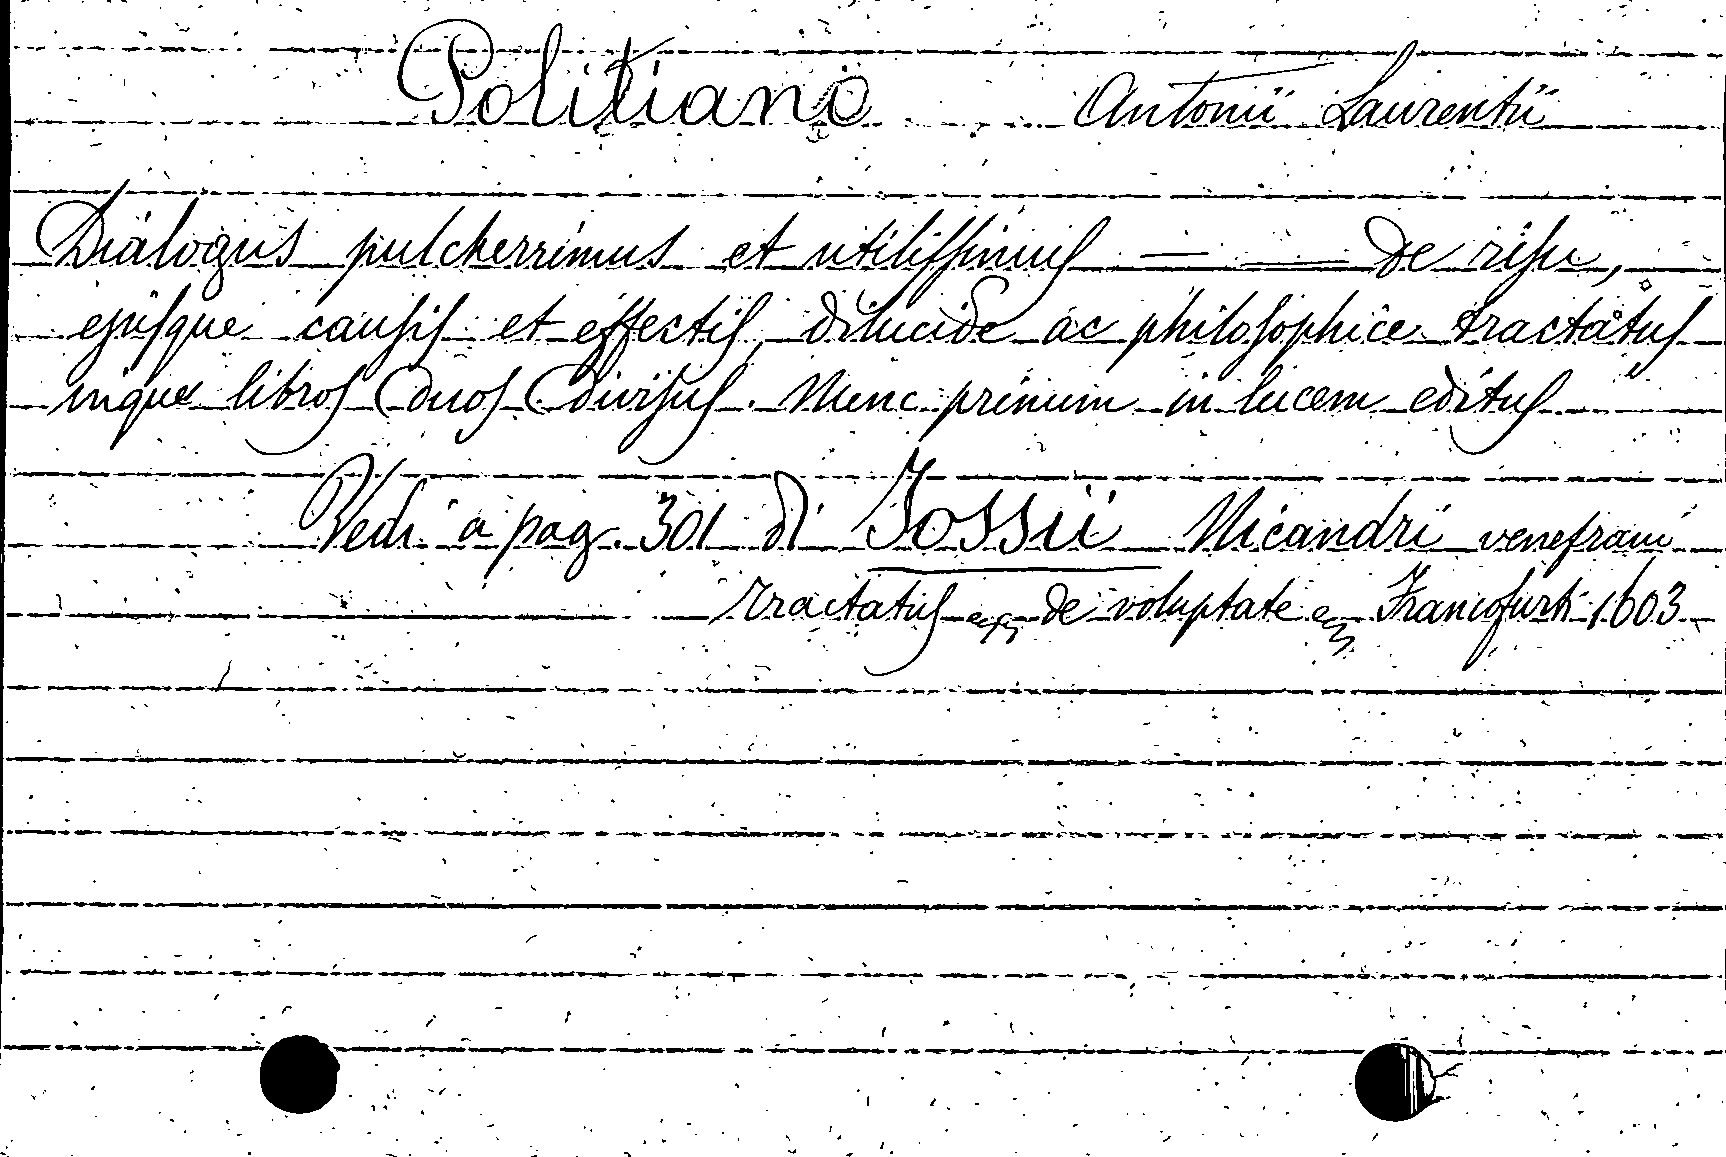 Politiano Antonii Laurentii
Dialogus pulcherrimus et utilissimus — — De risu,
ejusque causis et effectis, dilucide ac philosophice tractatus
inque libros duos divisus. Nunc primum in lucem editus
Vedi a pag. 301 di Jossii Nicandri venefrani
Tractatus de voluptate Francofurti 1603